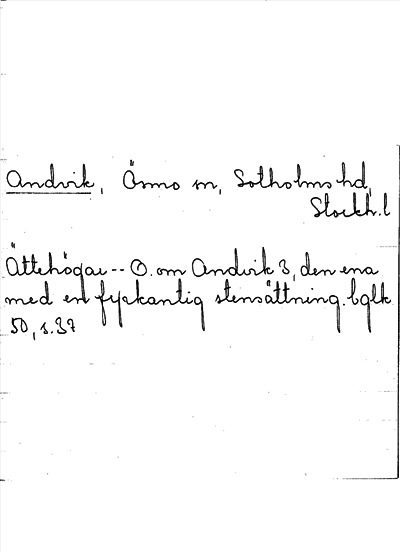 Andvik, Ösmo sn, Sotholms hd,
Stockh. l
Ättehögar -- O. om Andvik 3, den ena
med en fyrkantig stensättning. bglk
50, s. 37